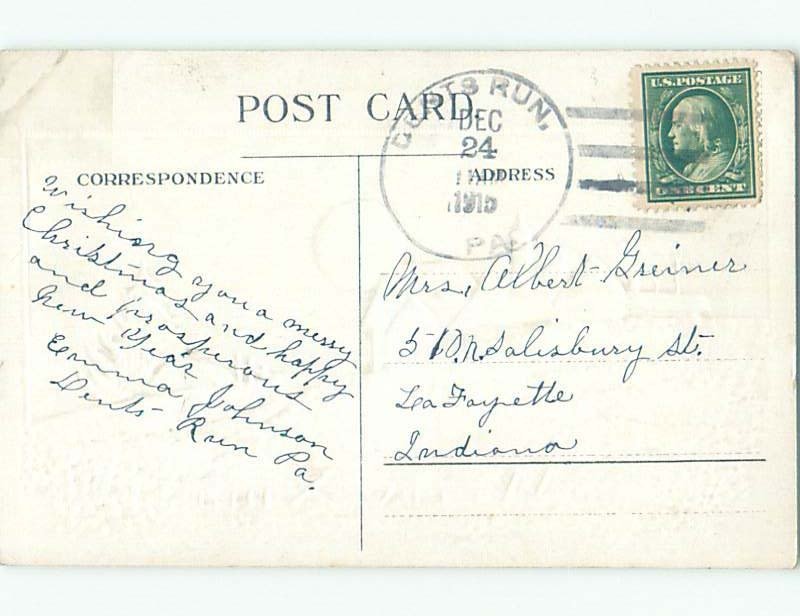 POST CARD.
CORRESPONDENCE
ADDRESS
RUN,
DEC
24
1915
PA.
U.S. POSTAGE
ONE CENT
Wishiong you a merry
Christmas and happy
and prosperous
New Year
Emma Johnson
Dents Run Pa.
Mrs. Albert Greiner
510 N. Salisbury St.
La Fayette
Indiana